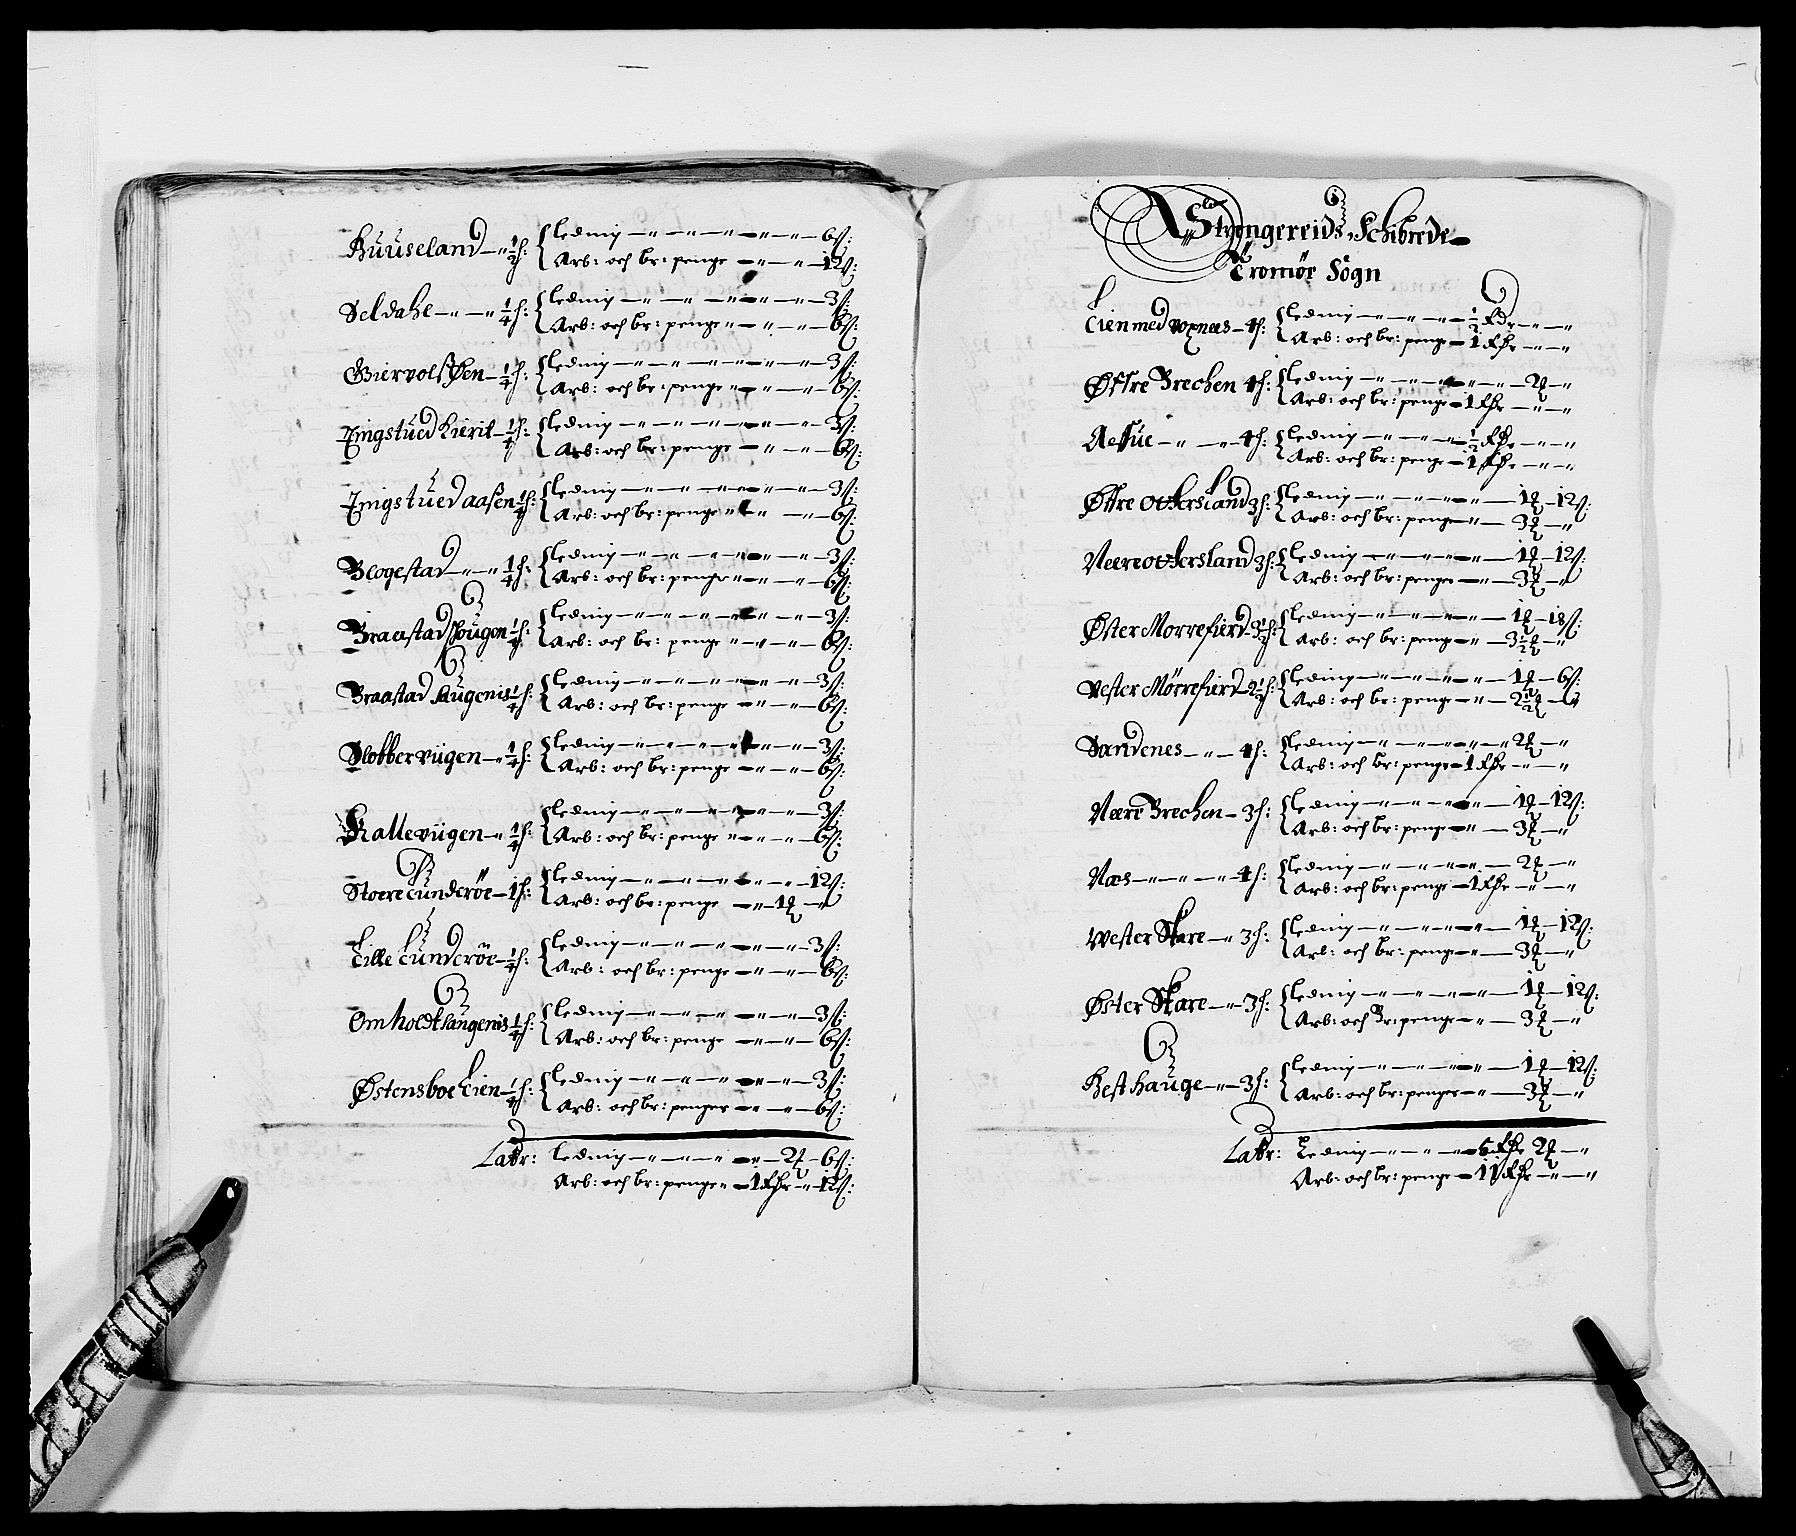 Huuseland – " ½ h: ledning – " – " – " – " – 6 ß:
Arb: och br: penge – " – " – 12 ß:
Seldahl – " – " ¼ h: ledning – " – " – " – " – 3 ß:
Arb: och br: penge " – " – " – 6 ß:
¼ h: ledning – " – " – " – " – 3 ß:
Arb: och br: penge " – " – " – 6 ß:
Kierit – ¼ h: ledning – " – " – " – " – 3 ß:
Arb: och br: penge – " – " – 6 ß:
aasen ¼ h: ledning – " – " – " – " – 3 ß:
Arb: och br: penge " – " – " – 6 ß:
Blogestad – " – " ¼ h: ledning – " – " – " – " – 3 ß:
Arb: och br: penge " – " – " – 6 ß:
Braastad Hougen ¼ h: ledning – " – " – " – " – 3 ß:
Arb: och br: penge " – " – " – 6 ß:
Braastad Haugenis ¼ h: ledning – " – " – " – " – 3 ß:
Arb: och br: penge – " – " – 6 ß:
Slobberviigen – " ¼ h: ledning – " – " – " – " – 3 ß:
Arb: och br: penge – " – " – 6 ß:
Kalleviigen – " ¼ h: ledning – " – " – " – " – 3 ß:
Arb: och br: penge " – " – " – 6 ß:
Stoere Lunderöe – 1 h: ledning – " – " – " – " – 12 ß:
Arb: och br: penge – " – 1 ƶ – "
Lille Lunderöe – ¼ h: ledning – " – " – " – " – 3 ß:
Arb: och br: penge – " – " – 6 ß:
Omholdt Haugenis ¼ h: ledning – " – " – " – " – 3 ß:
Arb: och br: penge – " – " – 6 ß:
Østensboe Eien – ¼ h: ledning – " – " – " – " – 3 ß:
Arb: och br: penger – " – " – 6 ß:
Latr: ledning – " – " – " – " – 2 ƶ – 6 ß:
Arb: och br: penge " – 1 Rdr – " – 12 ß:
Strengereids Schibrede
Tromöe Sogn
Eien med – 4 h: ledning – " – " – " – ½ Rdr – " – "
Arb: och br: penge – 1 Rdr – " – "
Østre Brechen 4 h: ledning – " – " – " – " – 2 ƶ – "
Arb: och br: penge – 1 Rdr – " – "
4 h: ledning – " – " – " – ½ Rdr – " – "
Arb: och br: penge – 1 Rdr – " – "
Østre Ottersland 3 h: ledning – " – " – " – " – 1 ƶ – 12 ß:
Arb: och br: penge – " – 3 ƶ – "
Neere Ottersland 3 h: ledning – " – " – " – " – 1 ƶ – 12 ß:
Arb: och br: penge – " – 3 ƶ – "
Øster Morrefierd – 3½ h: ledning – " – " – " – " – 1 ƶ – 18 ß:
Arb: och br: penge – " – 3½ ƶ – "
Vester Mörrefierd – 2½ h: ledning – " – " – " – " – 1 ƶ – 6 ß:
Arb: och br: penge – " – 2½ ƶ – "
Sandenes – " – 4 h: ledning – " – " – " – " – 2 ƶ – "
Arb: och br: penge – 1 Rdr – " – "
Neere Brechen – 3 h: ledning – " – " – " – " – 1 ƶ – 12 ß:
Arb: och br: penge – " – 3 ƶ – "
Næs – " – " – " – 4 h: ledning – " – " – " – " – 2 ƶ – "
Arb: och br: penge – 1 Rdr – " – "
Wester Skare – " 3 h: ledning – " – " – " – " – 1 ƶ – 12 ß:
Arb: och br: penge – " – 3 ƶ – "
Øster Skare – " – 3 h: ledning – " – " – " – " – 1 ƶ – 12 ß:
Arb: och Br: penge – " – 3 ƶ – "
Hesthauge – " – 3 h: ledning – " – " – " – " – 1 ƶ – 12 ß:
Arb: och br: penger – " – 3 ƶ – "
Latr: Ledning – " – " – " – 6 Rdr 2 ƶ – "
Arb: och br: penge – 11 Rdr – " – "